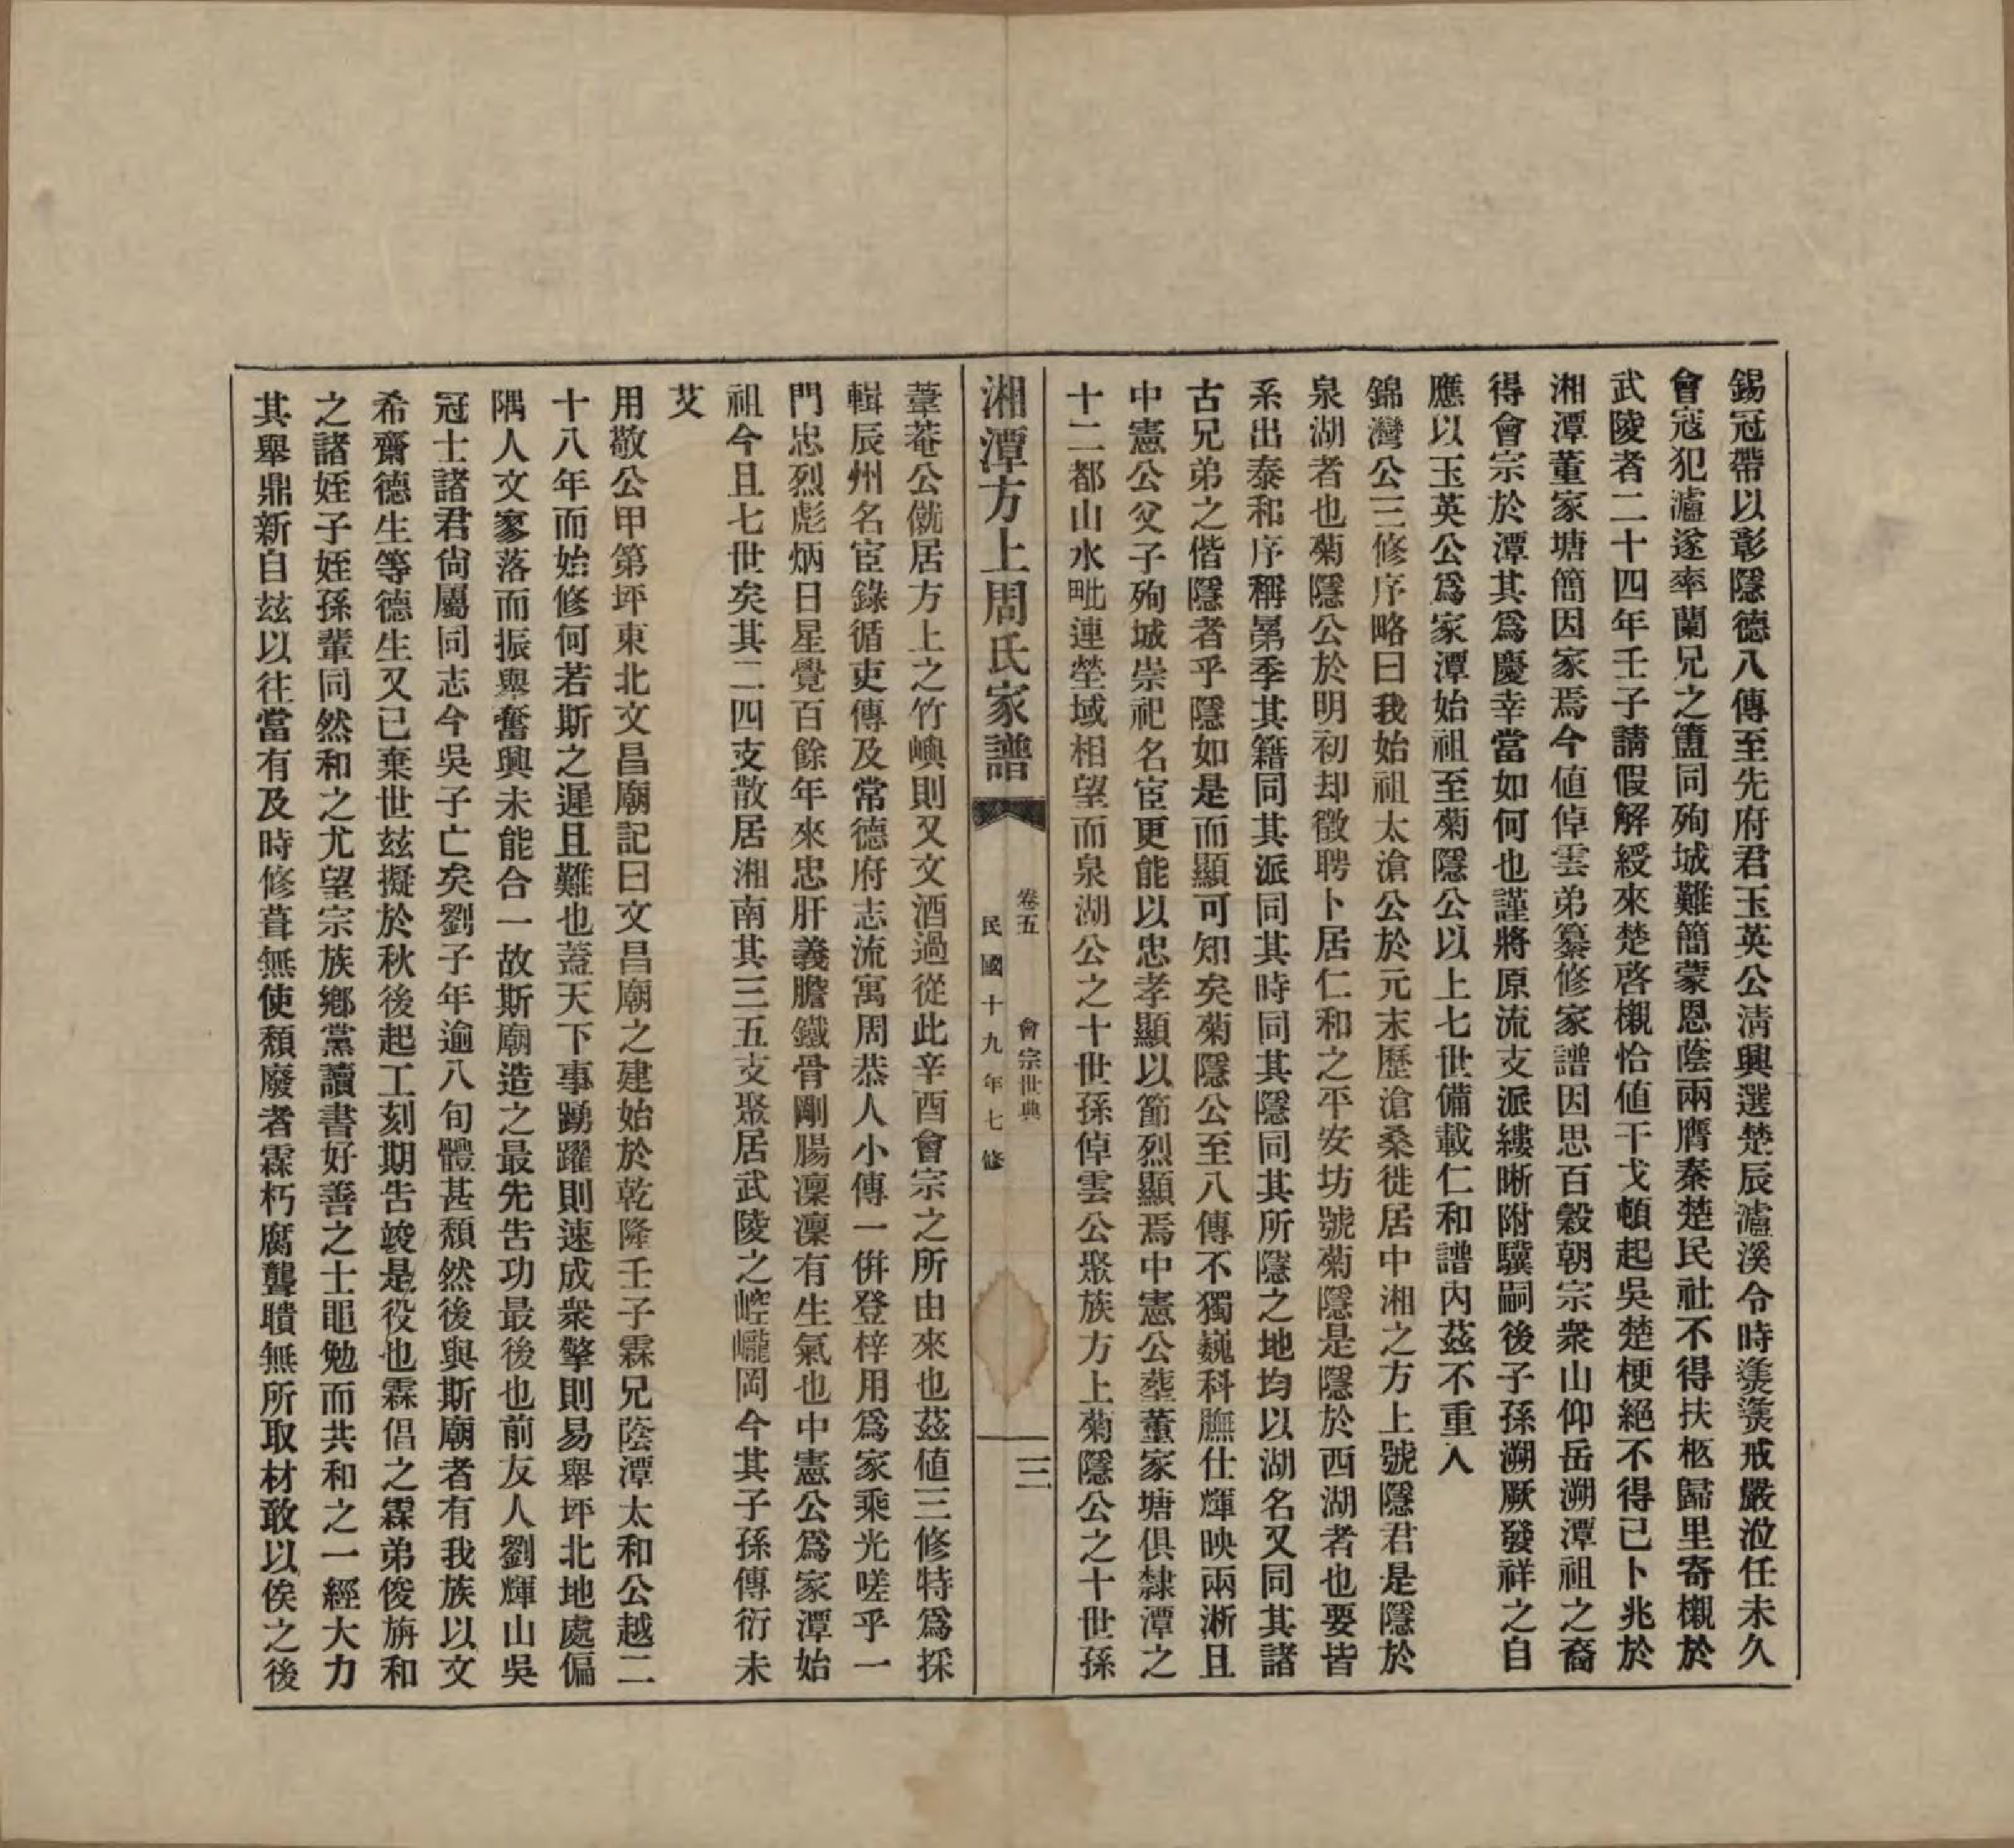 錫冠帶以彰隱德八傳至先府君玉英公淸興選楚辰瀘溪令時羮羮戒嚴涖任未久
會寇犯瀘遂率蘭兄之簠同殉城難簡蒙恩蔭兩膺秦楚民社不得扶柩歸里寄櫬於
武陵者二十四年壬子請假解綬來楚啓櫬恰値干戈頓起吳楚梗絕不得已卜兆於
湘潭董家塘簡因家焉今値倬雲弟纂修家譜因思百穀朝宗衆山仰岳溯潭祖之裔
得會宗於潭其爲慶幸當如何也謹將原流支派縷晰附驥嗣後子孫溯厥發祥之自
應以玉英公爲家潭始祖至菊隱公以上七世備載仁和譜內茲不重入
錦灣公三修序略曰我始祖太滄公於元末歷滄桑徙居中湘之方上號隱君是隱於
泉湖者也菊隱公於明初却徵聘卜居仁和之平安坊號菊隱是隱於西湖者也要皆
系出泰和序稱晜季其籍同其派同其時同其隱同其所隱之地均以湖名又同其諸
古兄弟之偕隱者乎隱如是而顯可知矣菊隱公至八傳不獨巍科膴仕輝映兩淅且
中憲公父子殉城崇祀名宦更能以忠孝顯以節烈顯焉中憲公塟董家塘俱隸潭之
十二都山水毗連塋域相望而泉湖公之十世孫倬雲公聚族方上菊隱公之十世孫
湘潭方上周氏家譜
卷五
會宗世典
民國十九年七修
三
葦菴公僦居方上之竹嶼則又文酒過從此辛酉會宗之所由來也茲値三修特爲採
輯辰州名宦錄循吏傳及常德府志流寓周恭人小傳一併登梓用爲家乘光嗟乎一
門忠烈彪炳日星覺百餘年來忠肝義膽鐵骨剛腸凜凜有生氣也中憲公爲家潭始
祖今且七世矣其二四支散居湘南其三五支聚居武陵之崆巄岡今其子孫傳衍未
艾
用敬公甲第坪東北文昌廟記曰文昌廟之建始於乾隆壬子霖兄蔭潭太和公越二
十八年而始修何若斯之遲且難也蓋天下事踴躍則速成衆擎則易舉坪北地處偏
隅人文寥落而振興奮興未能合一故斯廟造之最先告功最後也前友人劉輝山吳
冠士諸君尙屬同志今吳子亡矣劉子年逾八旬體甚頹然後與斯廟者有我族以文
希齋德生等德生又已棄世茲擬於秋後起工刻期告竣是役也霖倡之霖弟俊旃和
之諸姪子姪孫輩同然和之尤望宗族鄕黨讀書好善之士黽勉而共和之一經大力
其舉鼎新自玆以往當有及時修葺無使頹廢者霖朽腐聾聵無所取材敢以俟之後